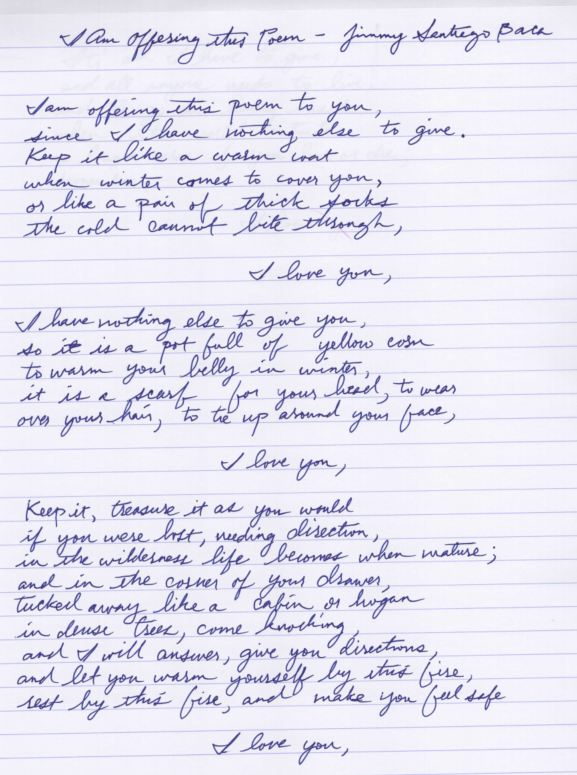 I Am Offering this Poem - Jimmy Santiago Baca
I am offering this poem to you,
since I have nothing else to give.
Keep it like a warm coat
when winter comes to cover you,
or like a pair of thick socks
the cold cannot bite through,
I love you,
I have nothing else to give you,
so it is a pot full of yellow corn
to warm your belly in winter,
it is a scarf for your head, to wear
over your hair, to tie up around your face,
I love you,
Keep it, treasure it as you would
if you were lost, needing direction,
in the wilderness life becomes when mature;
and in the corner of your drawer,
tucked away like a cabin or hogan
in dense trees, come knocking,
and I will answer, give you directions,
and let you warm yourself by this fire,
rest by this fire, and make you feel safe
I love you,